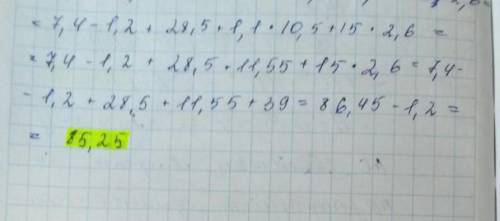 = 7,4 - 1,2 + 28,5 • 1,1 • 10,5 + 15 • 2,6 =
= 7,4 - 1,2 + 28,5 • 11,55 + 15 • 2,6 = 7,4 -
- 1,2 + 28,5 + 11,55 + 39 = 86,45 - 1,2 =
= 85,25